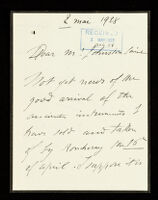 2 mai 1928
RECEIVED
Dear Mr. Johnston Saint
Not yet news of the
good arrival of the
instruments I
have sold and taken
of by Monday on 15
of april. I suppose